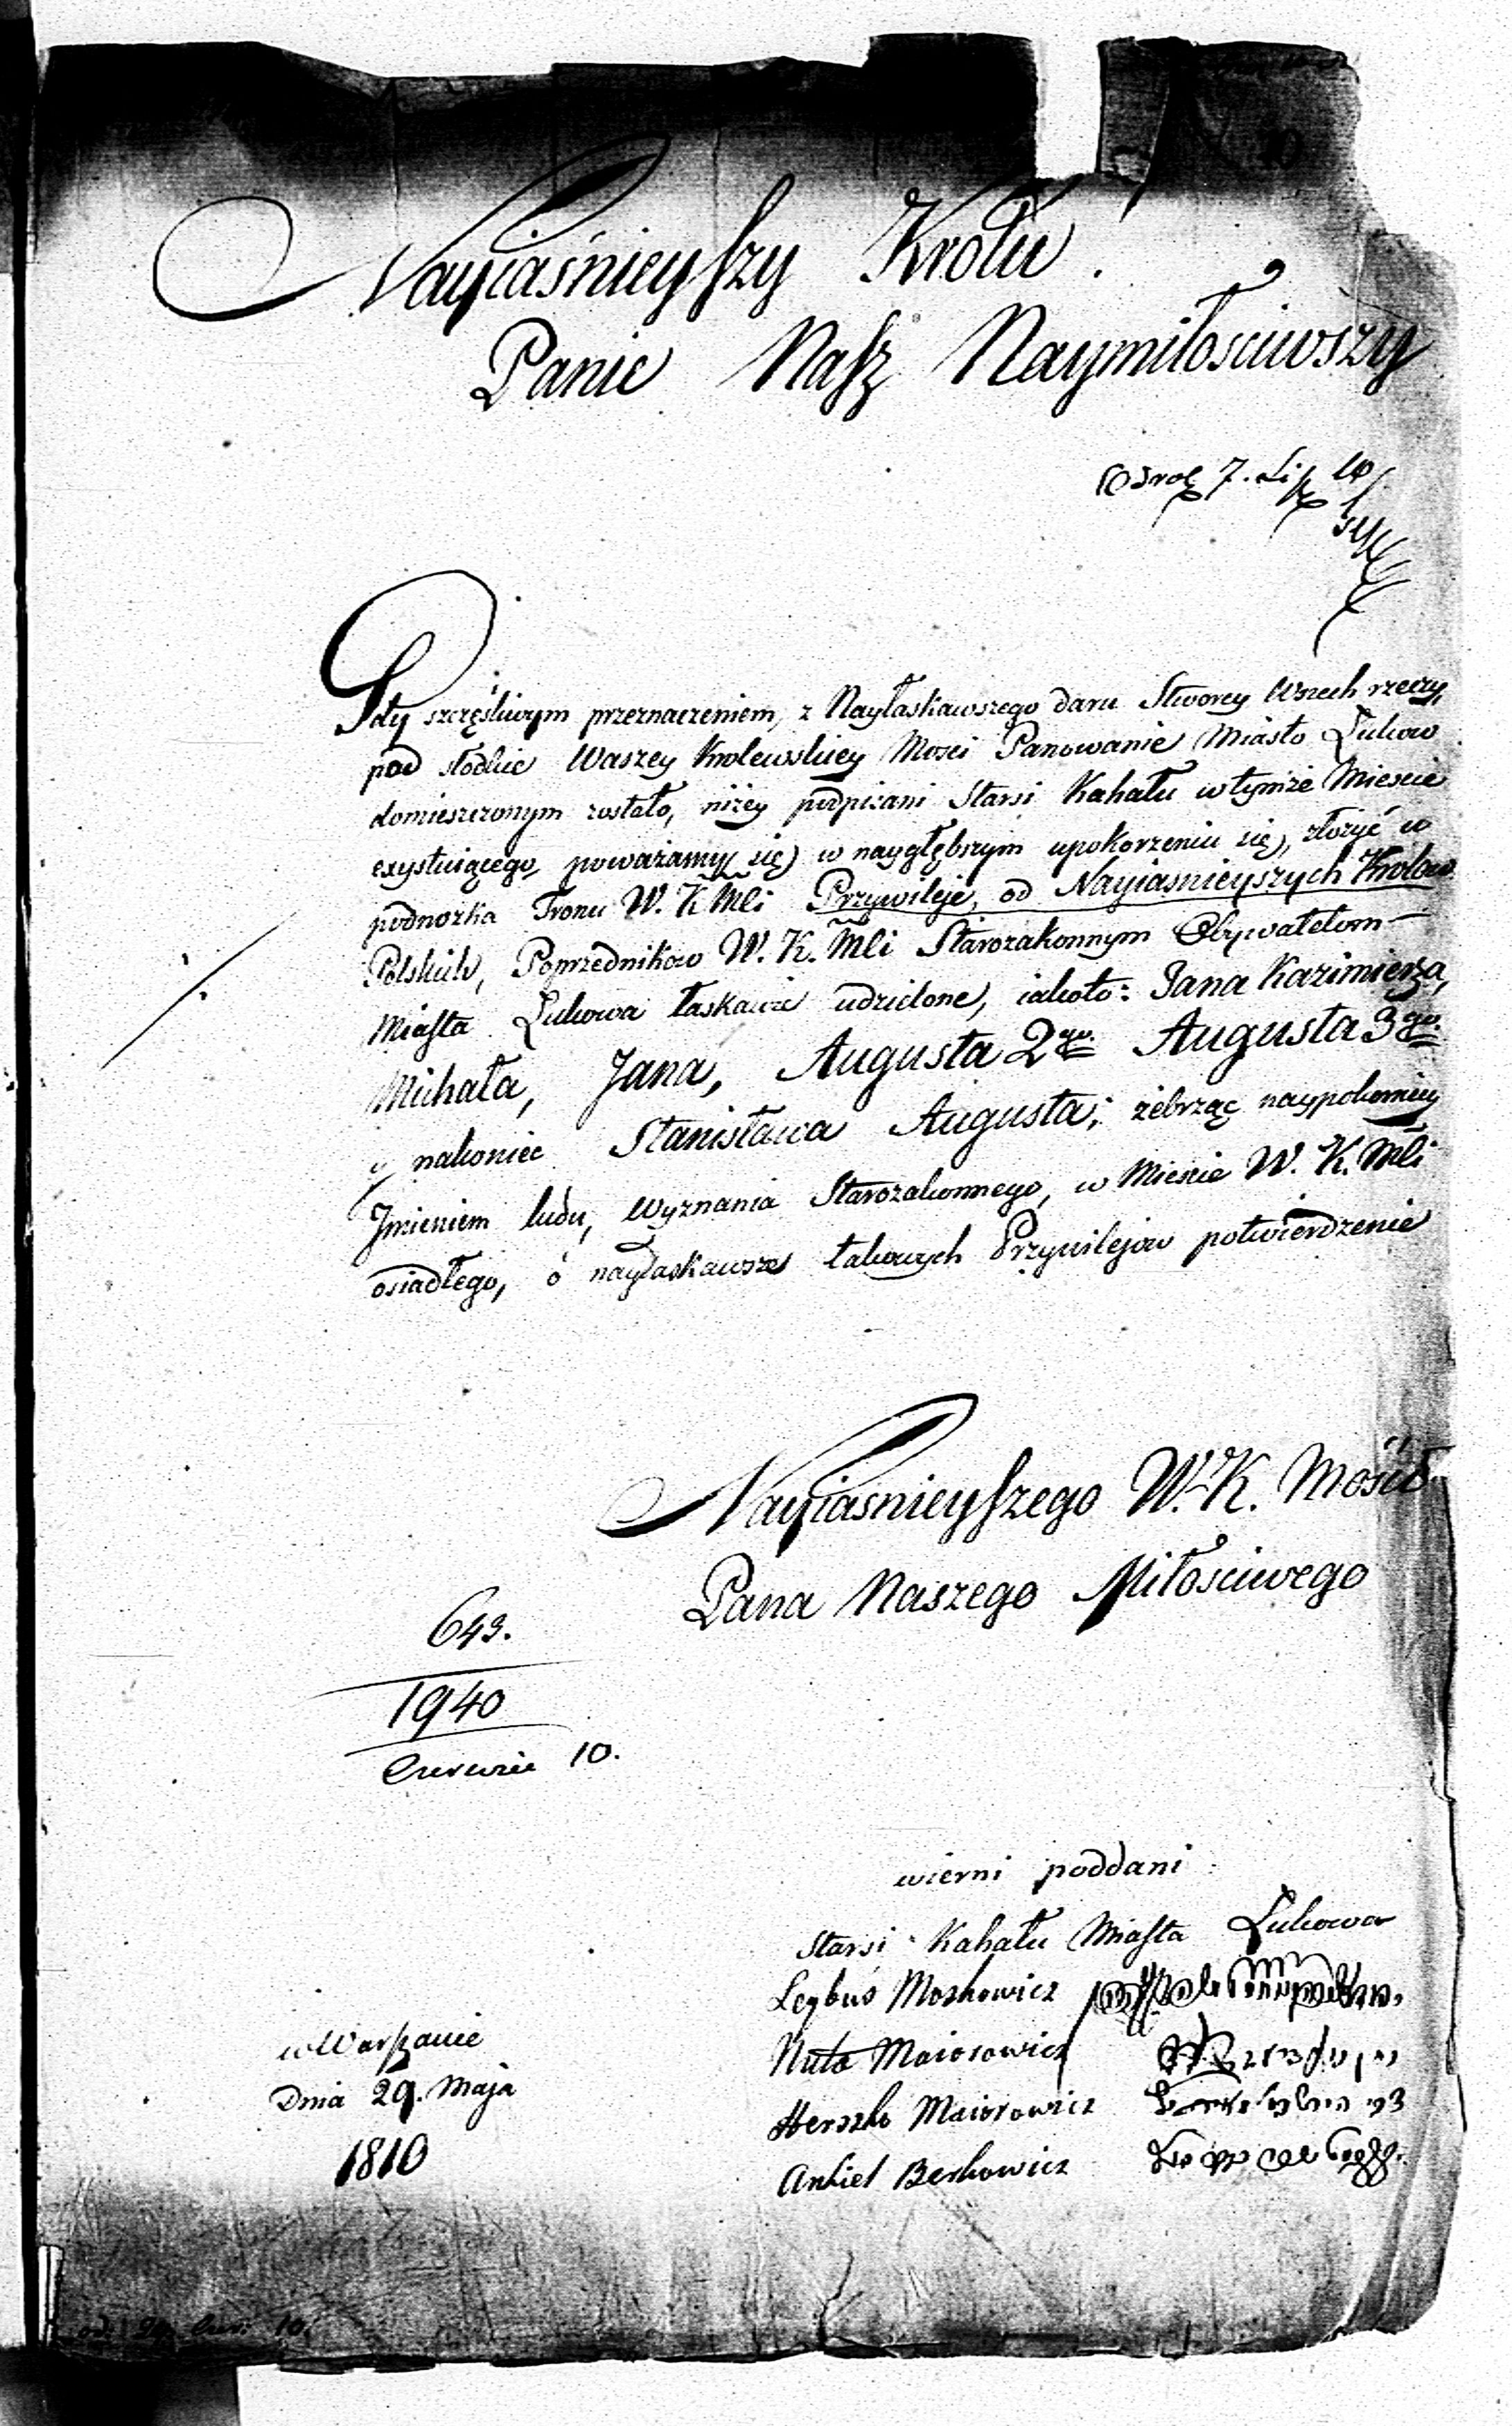 Nayiaśnieyszy Krolu.
Panie Nasz Naymiłościwszy
7. Lip 10
Gdy szczęśliwym przeznaczeniem, z Nayłaskawszego daru Stworcy Wszech rzeczy,
pod słodkie Waszey Krolewskiey Mosci Panowanie Miasto Łukow
domieszczonym zostało, niżey podpisani Starsi Kahału w tymże Miescie
exystuiącego, poważamy się w naygłębszym upokorzeniu się, złożyć u
podnożka Tronu W. K. Mci Przywileje, od Nayiasnieyszych Krolow
Polskich, Poprzednikow W. K. Mci Starozakonnym Obywatelom
Miasta Łukowa łaskawie udzielone, iakoto: Jana Kazimierza,
Michała, Jana, Augusta 2go. Augusta 3go.
y nakoniec Stanisława Augusta; żebrząc naypokorniey
Jmieniem ludu, Wyznania Starozakonnego, w Miescie W. K. Mci
osiadłego, o nayłaskawsze takowych Przywilejow potwierdzenie
Nayiasnieyszego W. K. Mości
Pana Naszego Miłościwego
643.
1940
Czerwiec 10.
wierni poddani
Starsi Kahału Miasta Łukowa
Leybuś Moszkowicz
Nuta Maiorowicz
Herszko Maiorowicz
Ankiel Berkowicz
w Warszawie
Dnia 29. Maja
1810